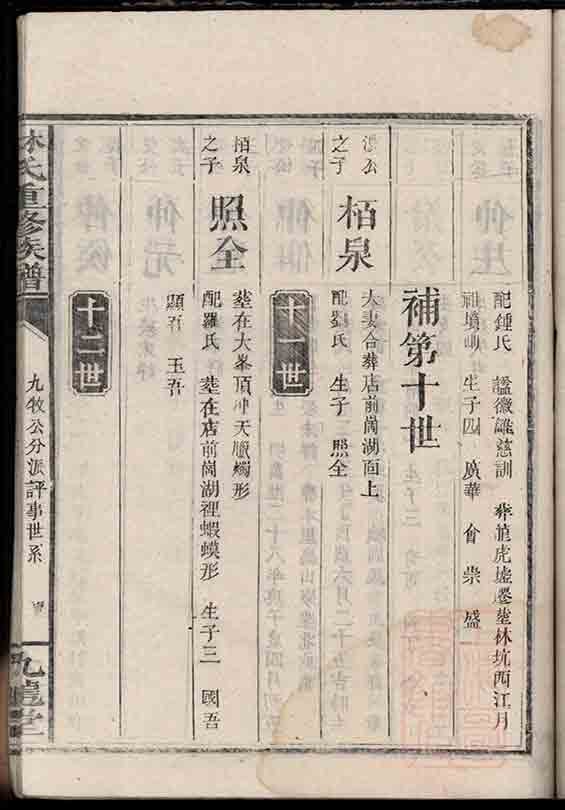 配鍾氏 謚徽雝慈訓 葬 虎墟 塋林坑西江月
祖墳 生子四 廣華 會 崇 盛
補第十世
之子
栢泉
夫妻合葬店前崗湖面上
配劉氏 生子 照全
十一世
栢泉
之子
照全
塋在大峯頂冲天臘燭形
配羅氏 塋在店前崗湖裡蝦蟆形 生子三 國吾
顯吾 玉吾
十二世
林氏重修族譜
九牧公分派評事世系
九龍堂